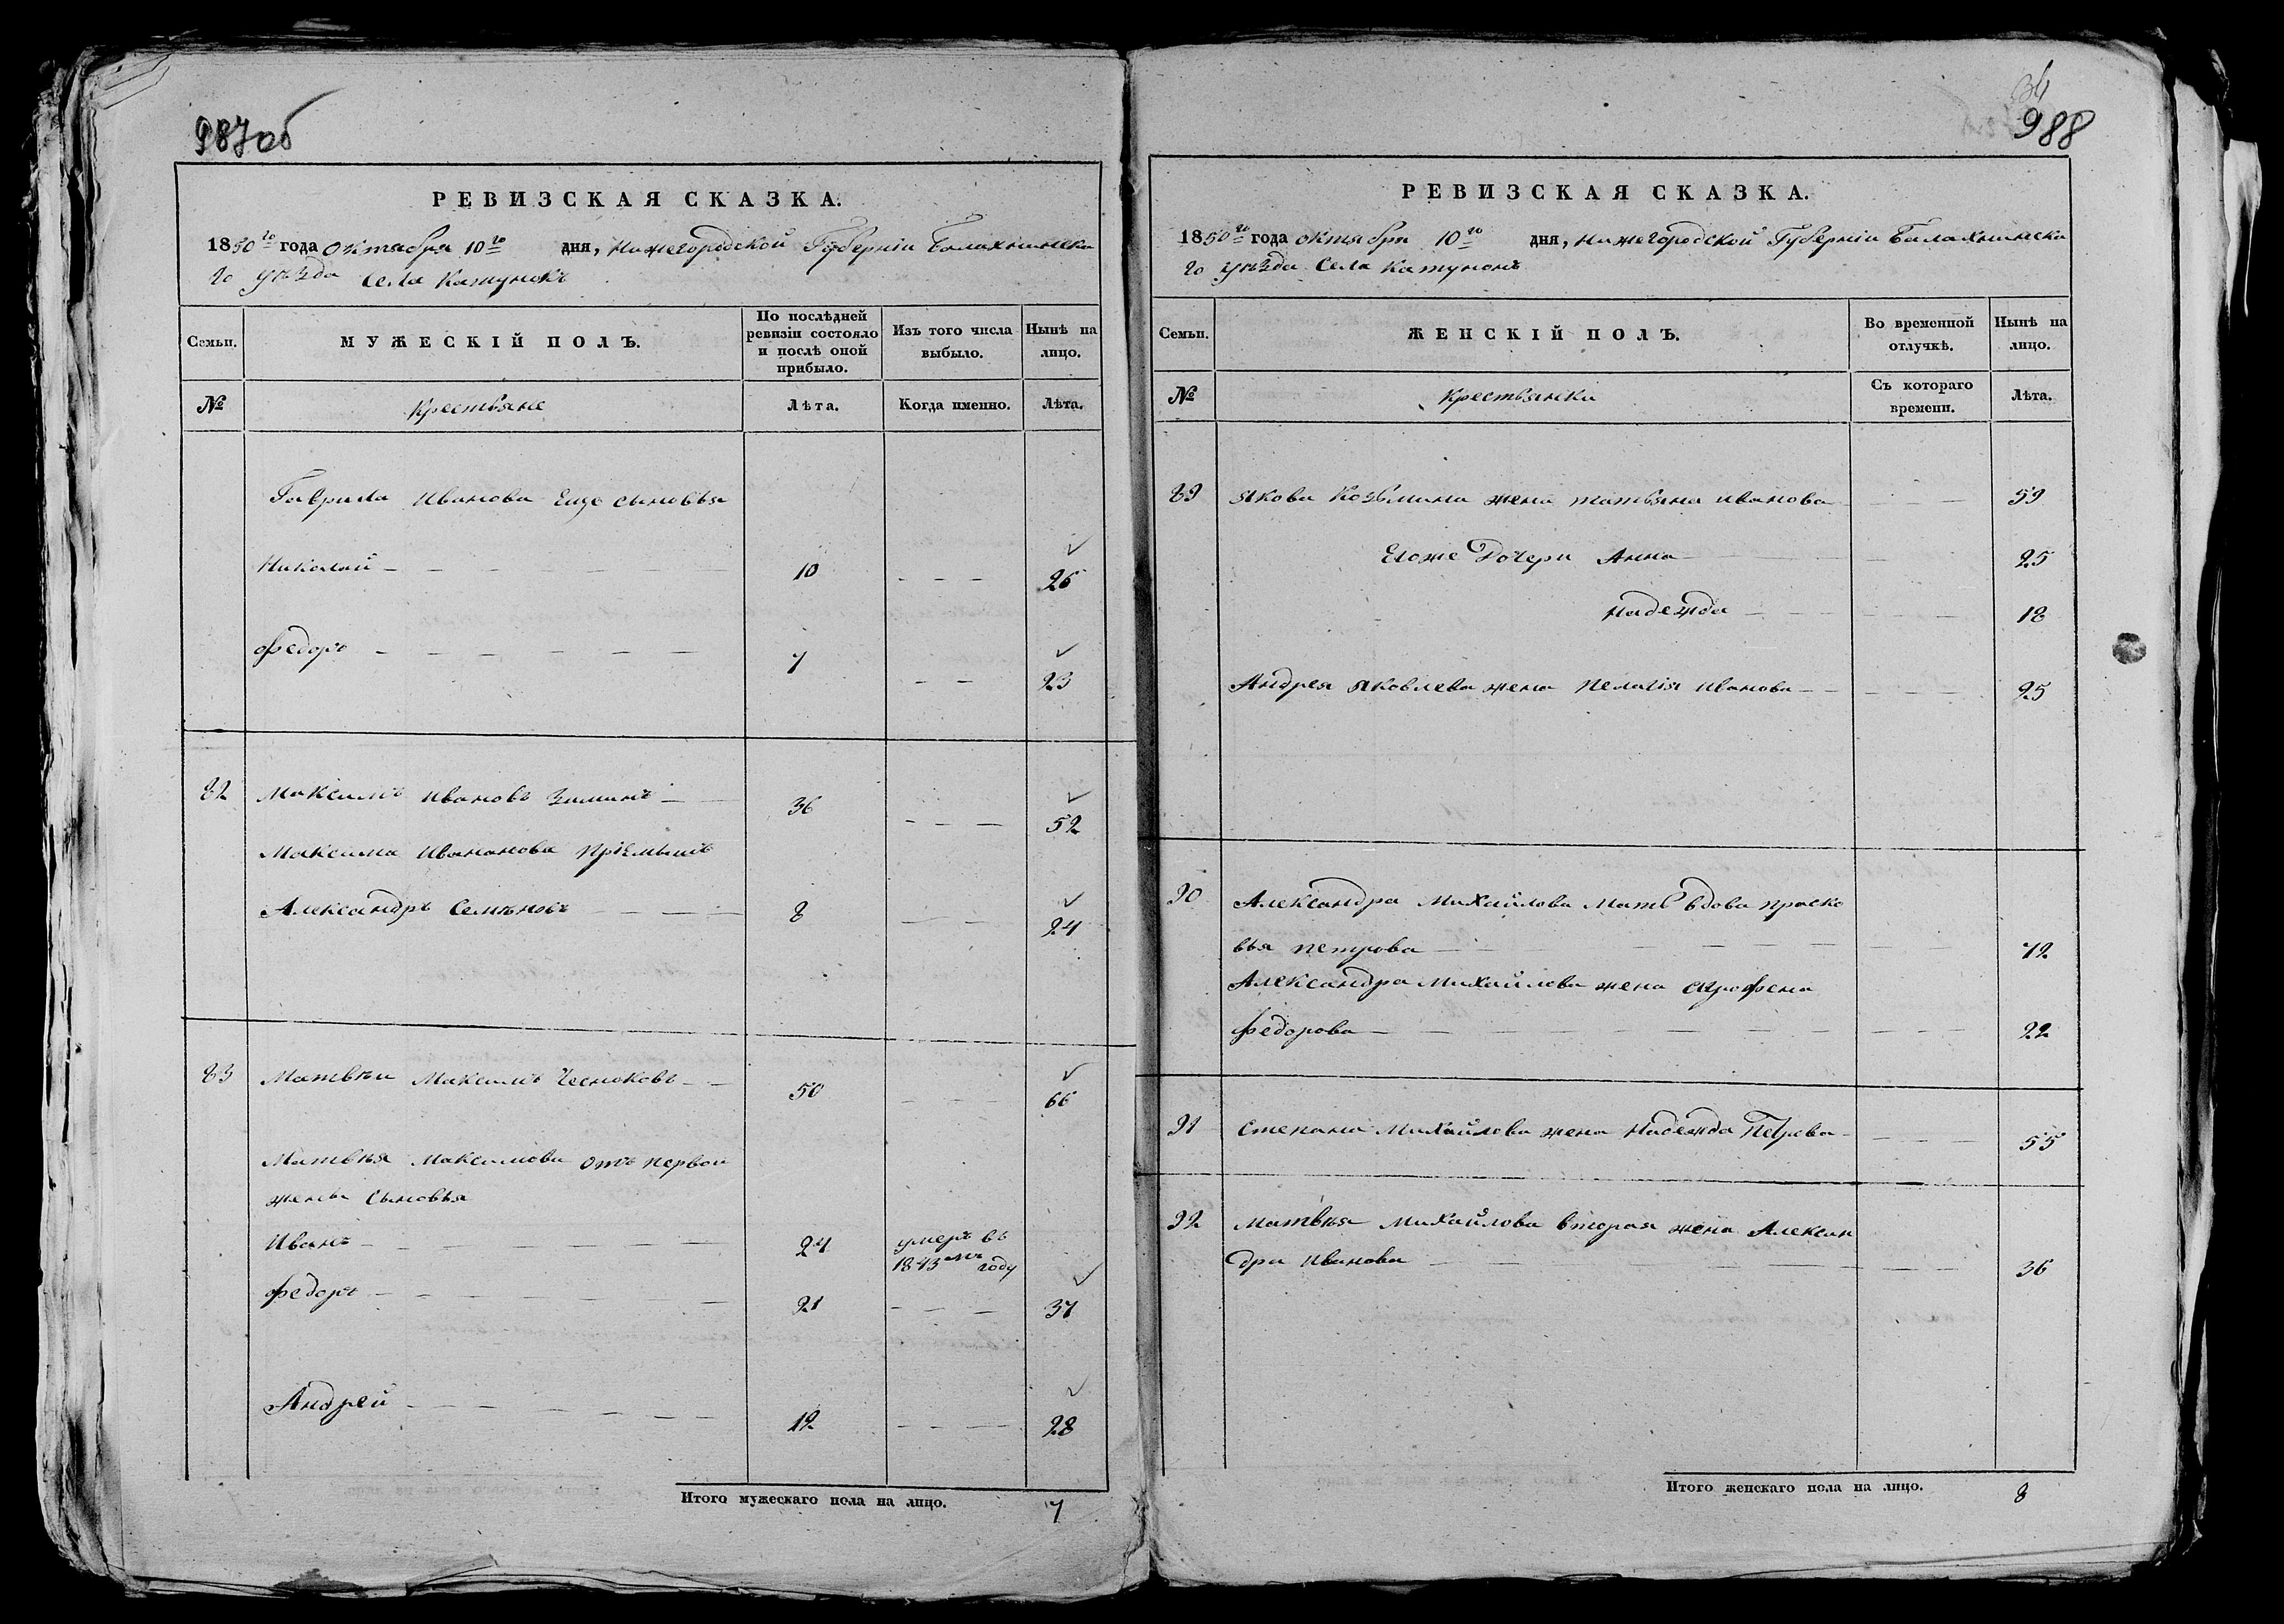 987об
РЕВИЗСКАЯ СКАЗКА.
1850го года Октября 10го дня, Нижегородской Губерніи Балахнинска
го уѣзда Села Катунокъ
Семьи. МУЖЕСКІЙ ПОЛЪ. По послѣдней ревизіи состояло и послѣ оной прибыло. Изъ того числа выбыло. Нынѣ на лицо.
№ Крестьяне Лѣта. Когда именно. Лѣта.
Гаврила Иванова Еще сыновья
Николай 10 26
Федоръ 7 23
82 Максимъ Ивановъ Зиминъ 36 52
Максима Ивананова Пріемышъ
Александръ Семѣновъ 8 24
83 Матвѣи Максимъ Чесноковъ 50 66
Матвѣя Максимова отъ первои
жены сыновья
Иванъ 24 умеръ въ
1843мъ году
Федоръ 21 37
Андрей 12 28
Итого мужескаго пола на лицо. 7
34
988
РЕВИЗСКАЯ СКАЗКА.
1850го года октября 10го дня, Нижегородской Губерніи Балахнинска
го уѣзда Села Катунокъ
Семьи. ЖЕНСКІЙ ПОЛЪ. Во временной отлучкѣ. Нынѣ на лицо.
№ Крестьянки Съ котораго времени. Лѣта.
89 Якова Козьмина жена татьяна иванова 59
Егоже Дочери Анна 25
Надежда 18
Андрея Яковлева жена Пелагія Иванова 25
90 Александра Михайлова Мать вдова праско
вья петрова 72
Александра Михайлова жена Агрофена
Федорова 22
91 Степана Михайлова жена Надежда Петрова 55
92 Матвѣя Михайлова вторая жена Алексан
дра Иванова 36
Итого женскаго пола на лицо. 8